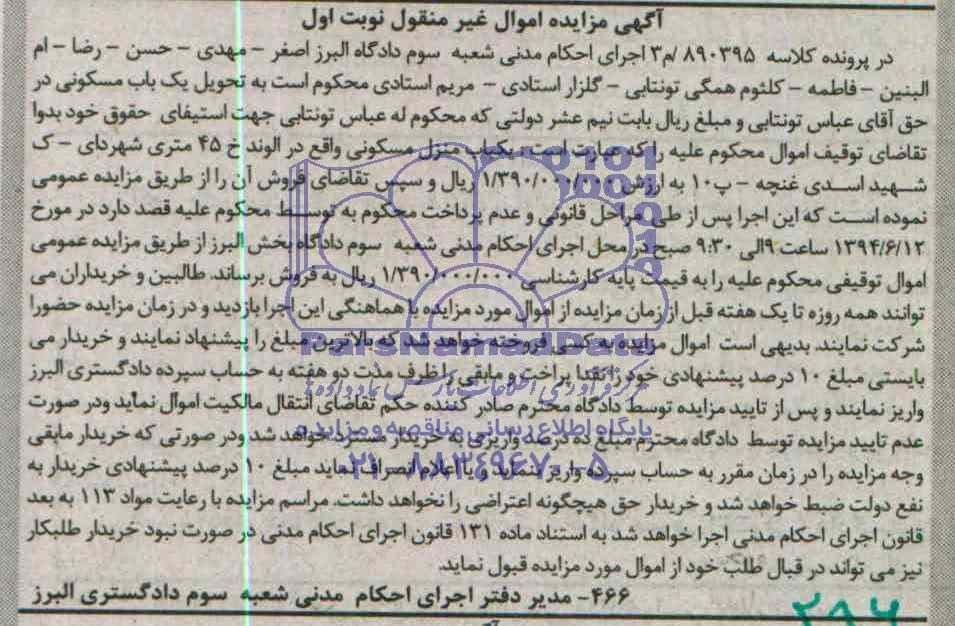 آگهی مزایده اموال غیر منقول نوبت اول
در پرونده کلاسه ۸۹۰۳۹۵ /م۳ اجرای احکام مدنی شعبه سوم دادگاه البرز اصغر – مهدی – حسن – رضا – ام
البنین – فاطمه – کلثوم همگی تونتابی – گلزار استادی – مریم استادی محکوم است به تحویل یک باب مسکونی در
حق آقای عباس تونتابی و مبلغ ریال بابت نیم عشر دولتی که محکوم له عباس تونتابی جهت استیفای حقوق خود بدوا
تقاضای توقیف اموال محکوم علیه را که عبارت است: یکباب منزل مسکونی واقع در الوند خ ۴۵ متری شهردای – ک
شهید اسدی غنچه – پ۱۰ به ارزش ۱/۳۹۰/۰۰۰/۰۰۰ ریال و سپس تقاضای فروش آن را از طریق مزایده عمومی
نموده است که این اجرا پس از طی مراحل قانونی و عدم پرداخت محکوم به توسط محکوم علیه قصد دارد در مورخ
۱۳۹۴/۶/۱۲ ساعت ۹الی ۹:۳۰ صبح در محل اجرای احکام مدنی شعبه سوم دادگاه بخش البرز از طریق مزایده عمومی
اموال توقیفی محکوم علیه را به قیمت پایه کارشناسی ۱/۳۹۰/۰۰۰/۰۰۰ ریال به فروش برساند. طالبین و خریداران می
توانند همه روزه تا یک هفته قبل از زمان مزایده از اموال مورد مزایده با هماهنگی این اجرا بازدید و در زمان مزایده حضورا
شرکت نمایند. بدیهی است اموال مزایده به کسی فروخته خواهد شد که بالاترین مبلغ را پیشنهاد نمایند و خریدار می
بایستی مبلغ ۱۰ درصد پیشنهادی خود را نقدا پراخت و مابقی را ظرف مدت دو هفته به حساب سپرده دادگستری البرز
واریز نمایند و پس از تایید مزایده توسط دادگاه محترم صادر کننده حکم تقاضای انتقال مالکیت اموال نماید ودر صورت
عدم تایید مزایده توسط دادگاه محترم مبلغ ده درصد واریزی به خریدار مسترد خواهد شد ودر صورتی که خریدار مابقی
وجه مزایده را در زمان مقرر به حساب سپرده واریز ننماید و یا اعلام انصراف نماید مبلغ ۱۰ درصد پیشنهادی خریدار به
نفع دولت ضبط خواهد شد و خریدار حق هیچگونه اعتراضی را نخواهد داشت. مراسم مزایده با رعایت مواد ۱۱۳ به بعد
قانون اجرای احکام مدنی اجرا خواهد شد به استناد ماده ۱۳۱ قانون اجرای احکام مدنی در صورت نبود خریدار طلبکار
نیز می تواند در قبال طلب خود از اموال مورد مزایده قبول نماید.
۴۶۶- مدیر دفتر اجرای احکام مدنی شعبه سوم دادگستری البرز
ParsNamadData
پایگاه اطلاع رسانی مناقصه و مزایده
۰۲۱-۸۸۳۴۹۶۷۰-۵